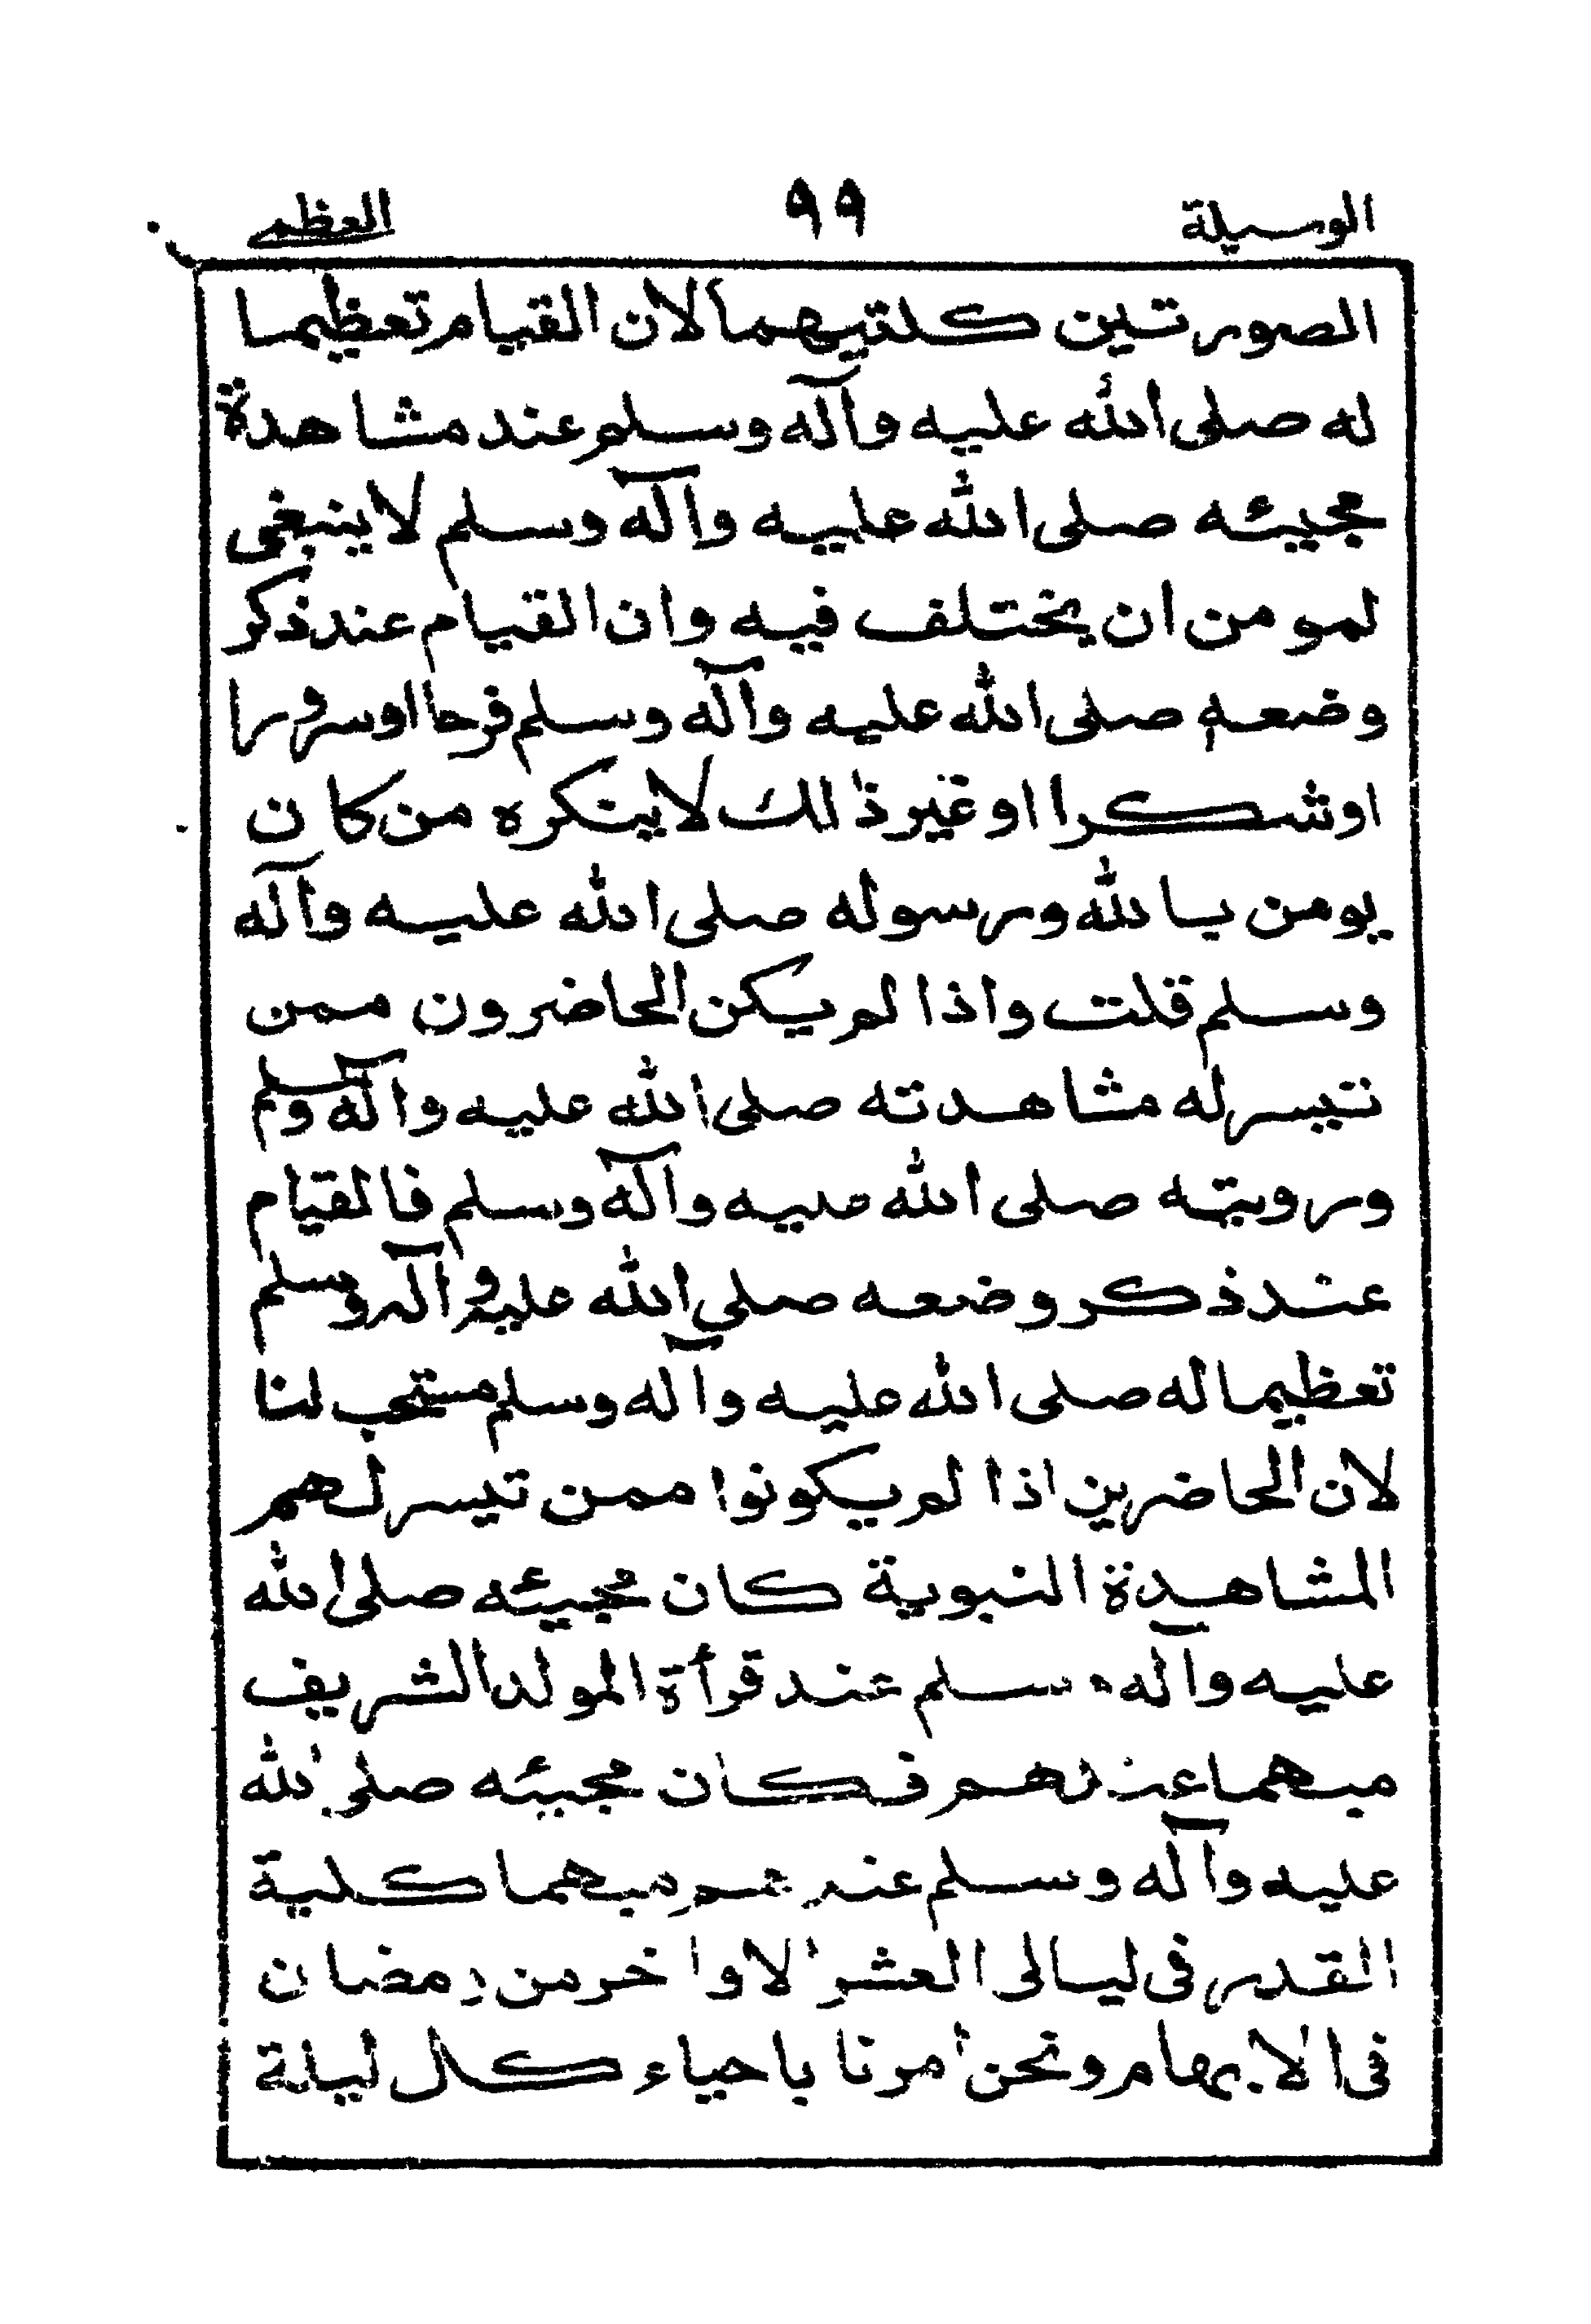 الوسيلة ٩٩ العظمى
الصورتين كلتيهما لان القيام تعظيما
له صلى الله عليه وآله وسلم عند مشاهدة
مجيئه صلى الله عليه وآله وسلم لا ينبغى
لمومن ان يختلف فيه وان القيام عند ذكر
وضعه صلى الله عليه وآله وسلم فرحا او سرورا
او شكرا او غير ذلك لا ينكره من كان
يومن بالله ورسوله صلى الله عليه وآله
وسلم قلت واذا لم يكن الحاضرون ممن
تيسر له مشاهدته صلى الله عليه وآله وسلم
ورويته صلى الله عليه وآله وسلم فالقيام
عند ذكر وضعه صلى الله عليه وآله وسلم
تعظيما له صلى الله عليه وآله وسلم مستحب لنا
لان الحاضرين اذا لم يكونوا ممن تيسر لهم
المشاهدة النبوية كان مجيئه صلى الله
عليه وآله وسلم عند قرأة المولد الشريف
مبهما عندهم فكان مجيئه صلى الله
عليه وآله وسلم عندهم مبهما كلية
القدر فى ليالى العشر الاواخر من رمضان
فى الابهام ونحن امرنا باحياء كل ليلة